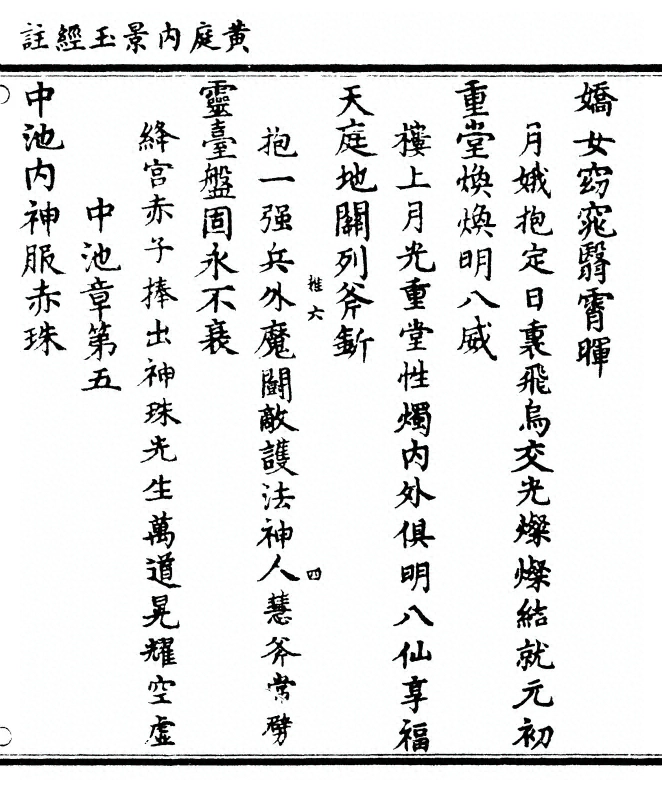 黃庭內景玉經註
嬌女窈窕翳霄暉
月娥抱定日裏飛烏交光燦燦結就元初
重堂煥煥明八威
樓上月光重堂性燭內外俱明八仙享福
天庭地關列斧釿
推六 四
抱一强兵外魔鬪敵護法神人慧斧常劈
靈臺盤固永不衰
絳宮赤子捧出神珠先生萬道晃耀空虛
中池章第五
中池內神服赤珠